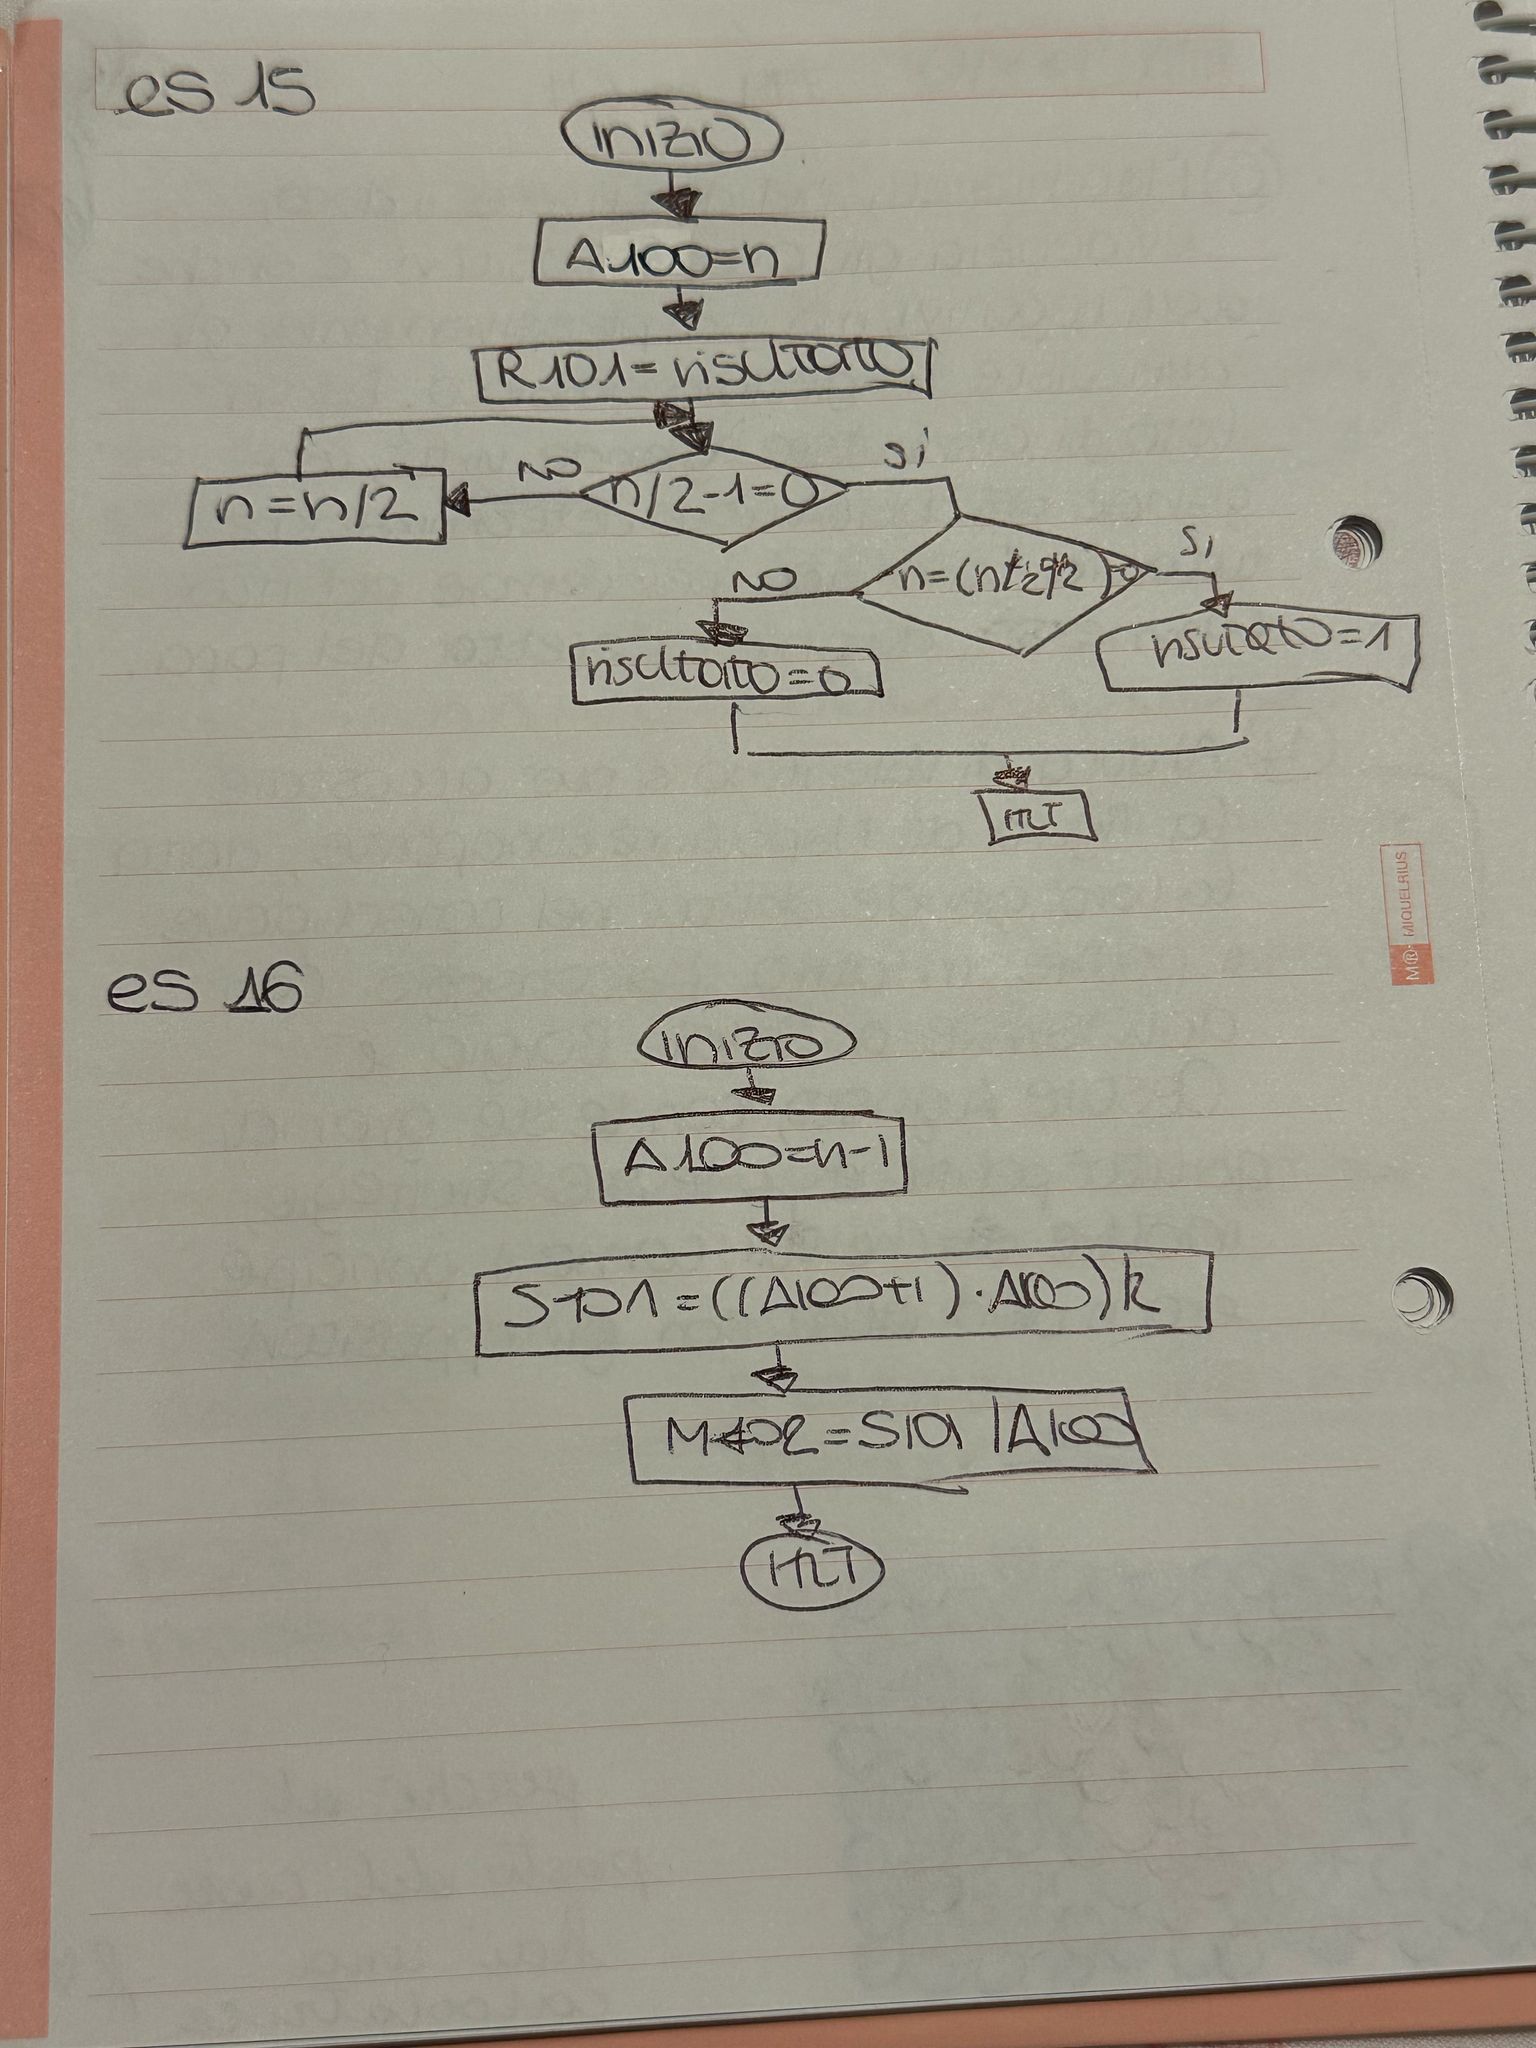 es 15
INIZIO
A100=n
R101=risultato
n/2-1=0
NO
SI
n=n/2
SI
NO
risultato=0
risultato=1
HLT
M® MIQUELRIUS
es 16
INIZIO
A100=n-1
S101=((A100+1)·A100)/2
M102=S101/A100
HLT